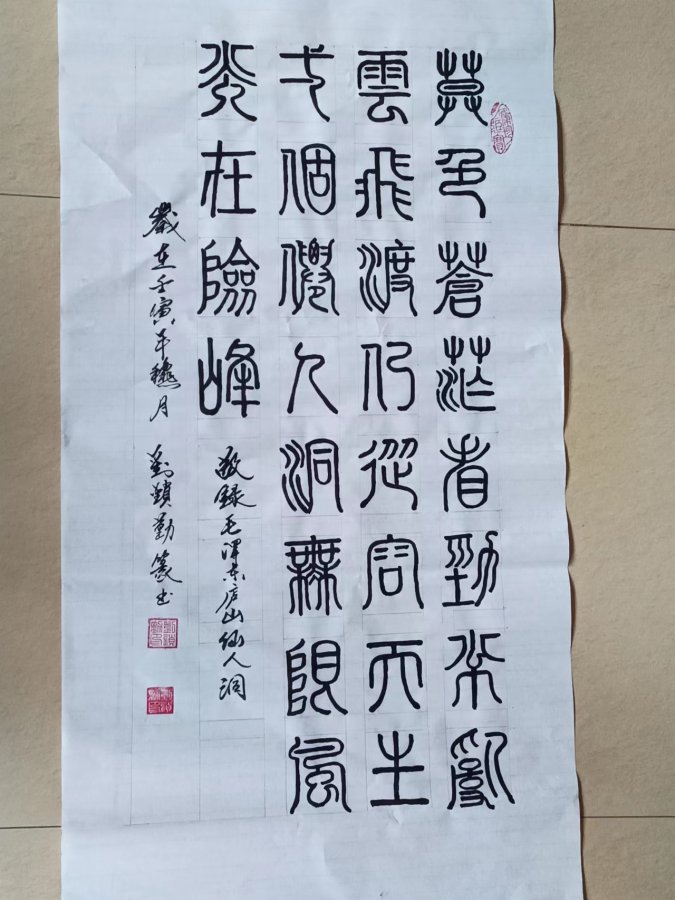 莫色蒼茫看勁松亂
雲飛渡仍從容天生
弌個僊人洞無限風
光在險峰
敬録毛澤东庐山仙人洞
歲在壬寅年穐月 劉鎖勤篆书